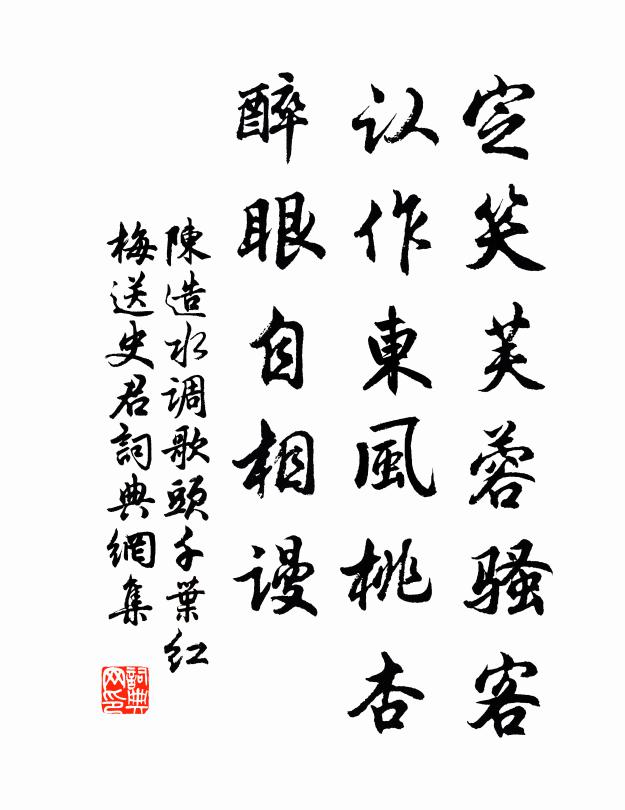 定笑芙蓉騷客
认作東風桃杏
醉眼自相謾
陳造水调歌頭千葉红
梅送史君詞典網集
詞典网印